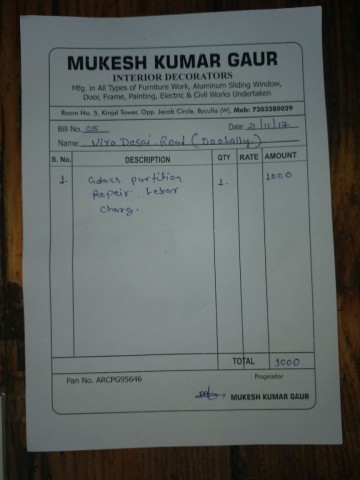 MUKESH KUMAR GAUR
INTERIOR DECORATORS
Mfg. in All Types of Furniture Work, Aluminum Sliding Window,
Door, Frame, Painting, Electric & Civil Works Undertaken
Room No. 5, Kinjal Tower, Opp. Jacob Circle, Byculla (W), Mob: 7303280029
Bill No. 05 Date 21/11/17
Name: Vira Desai Road (Dootally)
S. No. DESCRIPTION QTY RATE AMOUNT
1. Glass partition 1. 1000
Repair Lebar
Charg.
TOTAL 1000
Pan No. ARCPG95646 Proprietor
MUKESH KUMAR GAUR